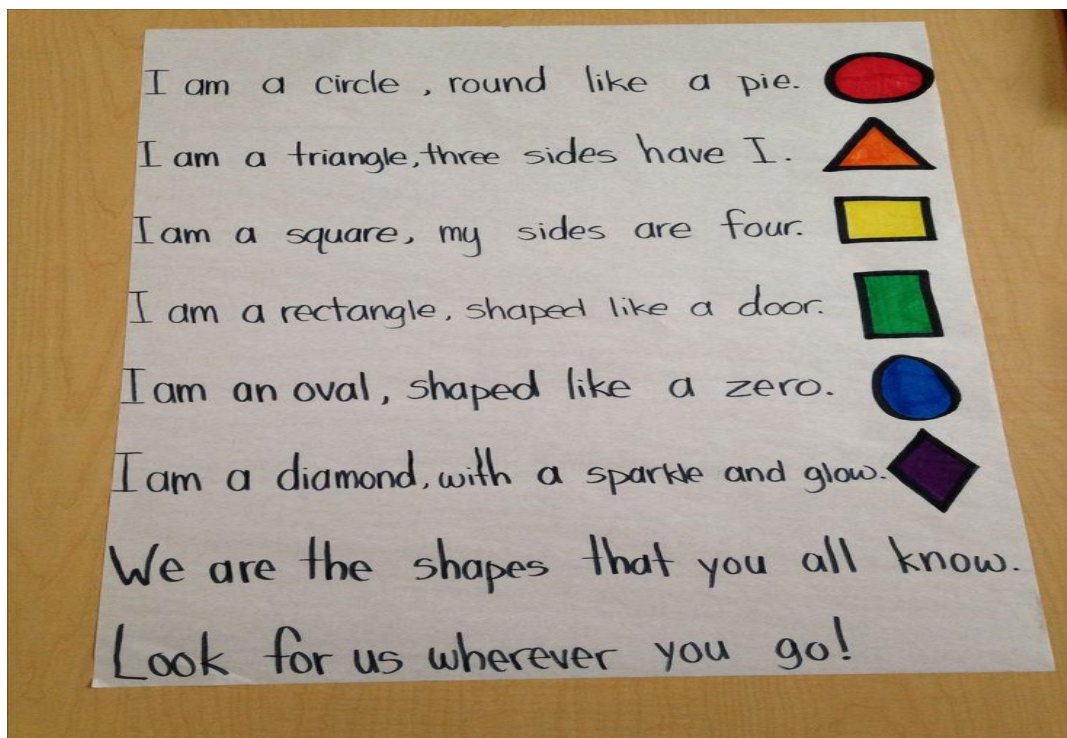 I am a circle, round like a pie.
I am a triangle, three sides have I.
I am a square, my sides are four.
I am a rectangle, shaped like a door.
I am an oval, shaped like a zero.
I am a diamond, with a sparkle and glow.
We are the shapes that you all know.
Look for us wherever you go!